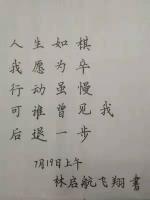 人生如棋
我愿为卒
行动虽慢
可谁曾见我
后退一步
7月19日上午
林启航飞翔書